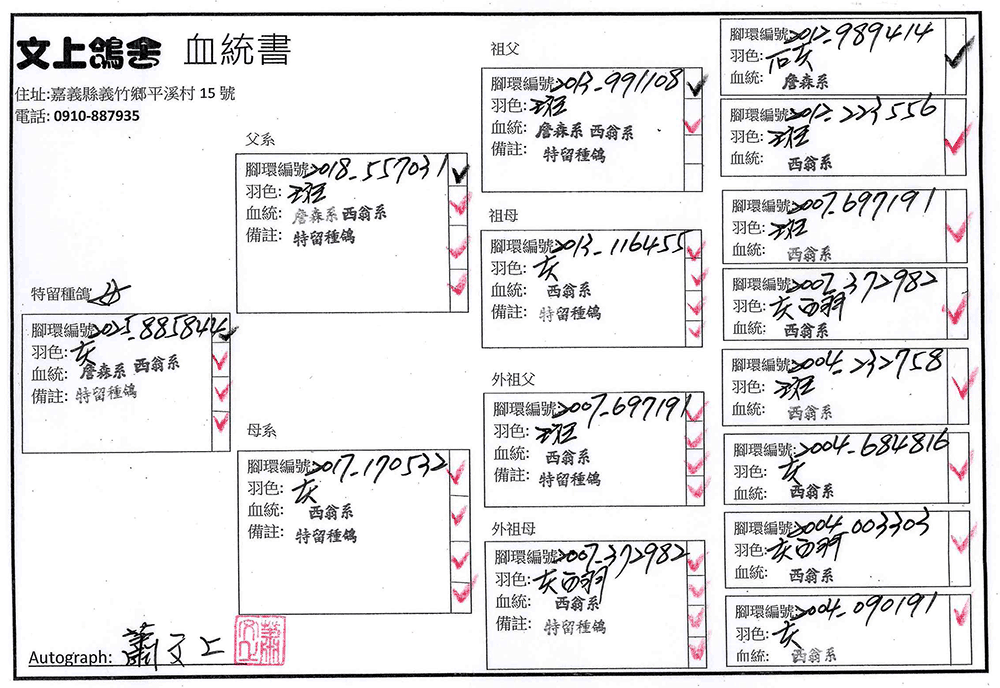 文上鴿舍 血統書
住址:嘉義縣義竹鄉平溪村 15 號
電話: 0910-887935
特留種鴿
腳環編號2025-885844
羽色:灰
血統: 詹森系 西翁系
備註: 特留種鴿
父系
腳環編號2018-557031
羽色:斑
血統: 詹森系 西翁系
備註: 特留種鴿
母系
腳環編號2017-170532
羽色: 灰
血統: 西翁系
備註: 特留種鴿
祖父
腳環編號2013-991108
羽色:斑
血統: 詹森系 西翁系
備註: 特留種鴿
祖母
腳環編號2013-116455
羽色:灰
血統: 西翁系
備註: 特留種鴿
外祖父
腳環編號2007-697191
羽色:斑
血統: 西翁系
備註: 特留種鴿
外祖母
腳環編號2007-372982
羽色:灰白羽
血統: 西翁系
備註: 特留種鴿
腳環編號2012-989414
羽色:石灰
血統: 詹森系
腳環編號2012-223556
羽色:斑
血統: 西翁系
腳環編號2007-697191
羽色:斑
血統: 西翁系
腳環編號2007-372982
羽色:灰白羽
血統: 西翁系
腳環編號2004-232758
羽色:斑
血統: 西翁系
腳環編號:2004-684816
羽色:灰
血統: 西翁系
腳環編號2004-003303
羽色:灰白羽
血統: 西翁系
腳環編號2004-090191
羽色:灰
血統: 西翁系
Autograph: 蕭文上